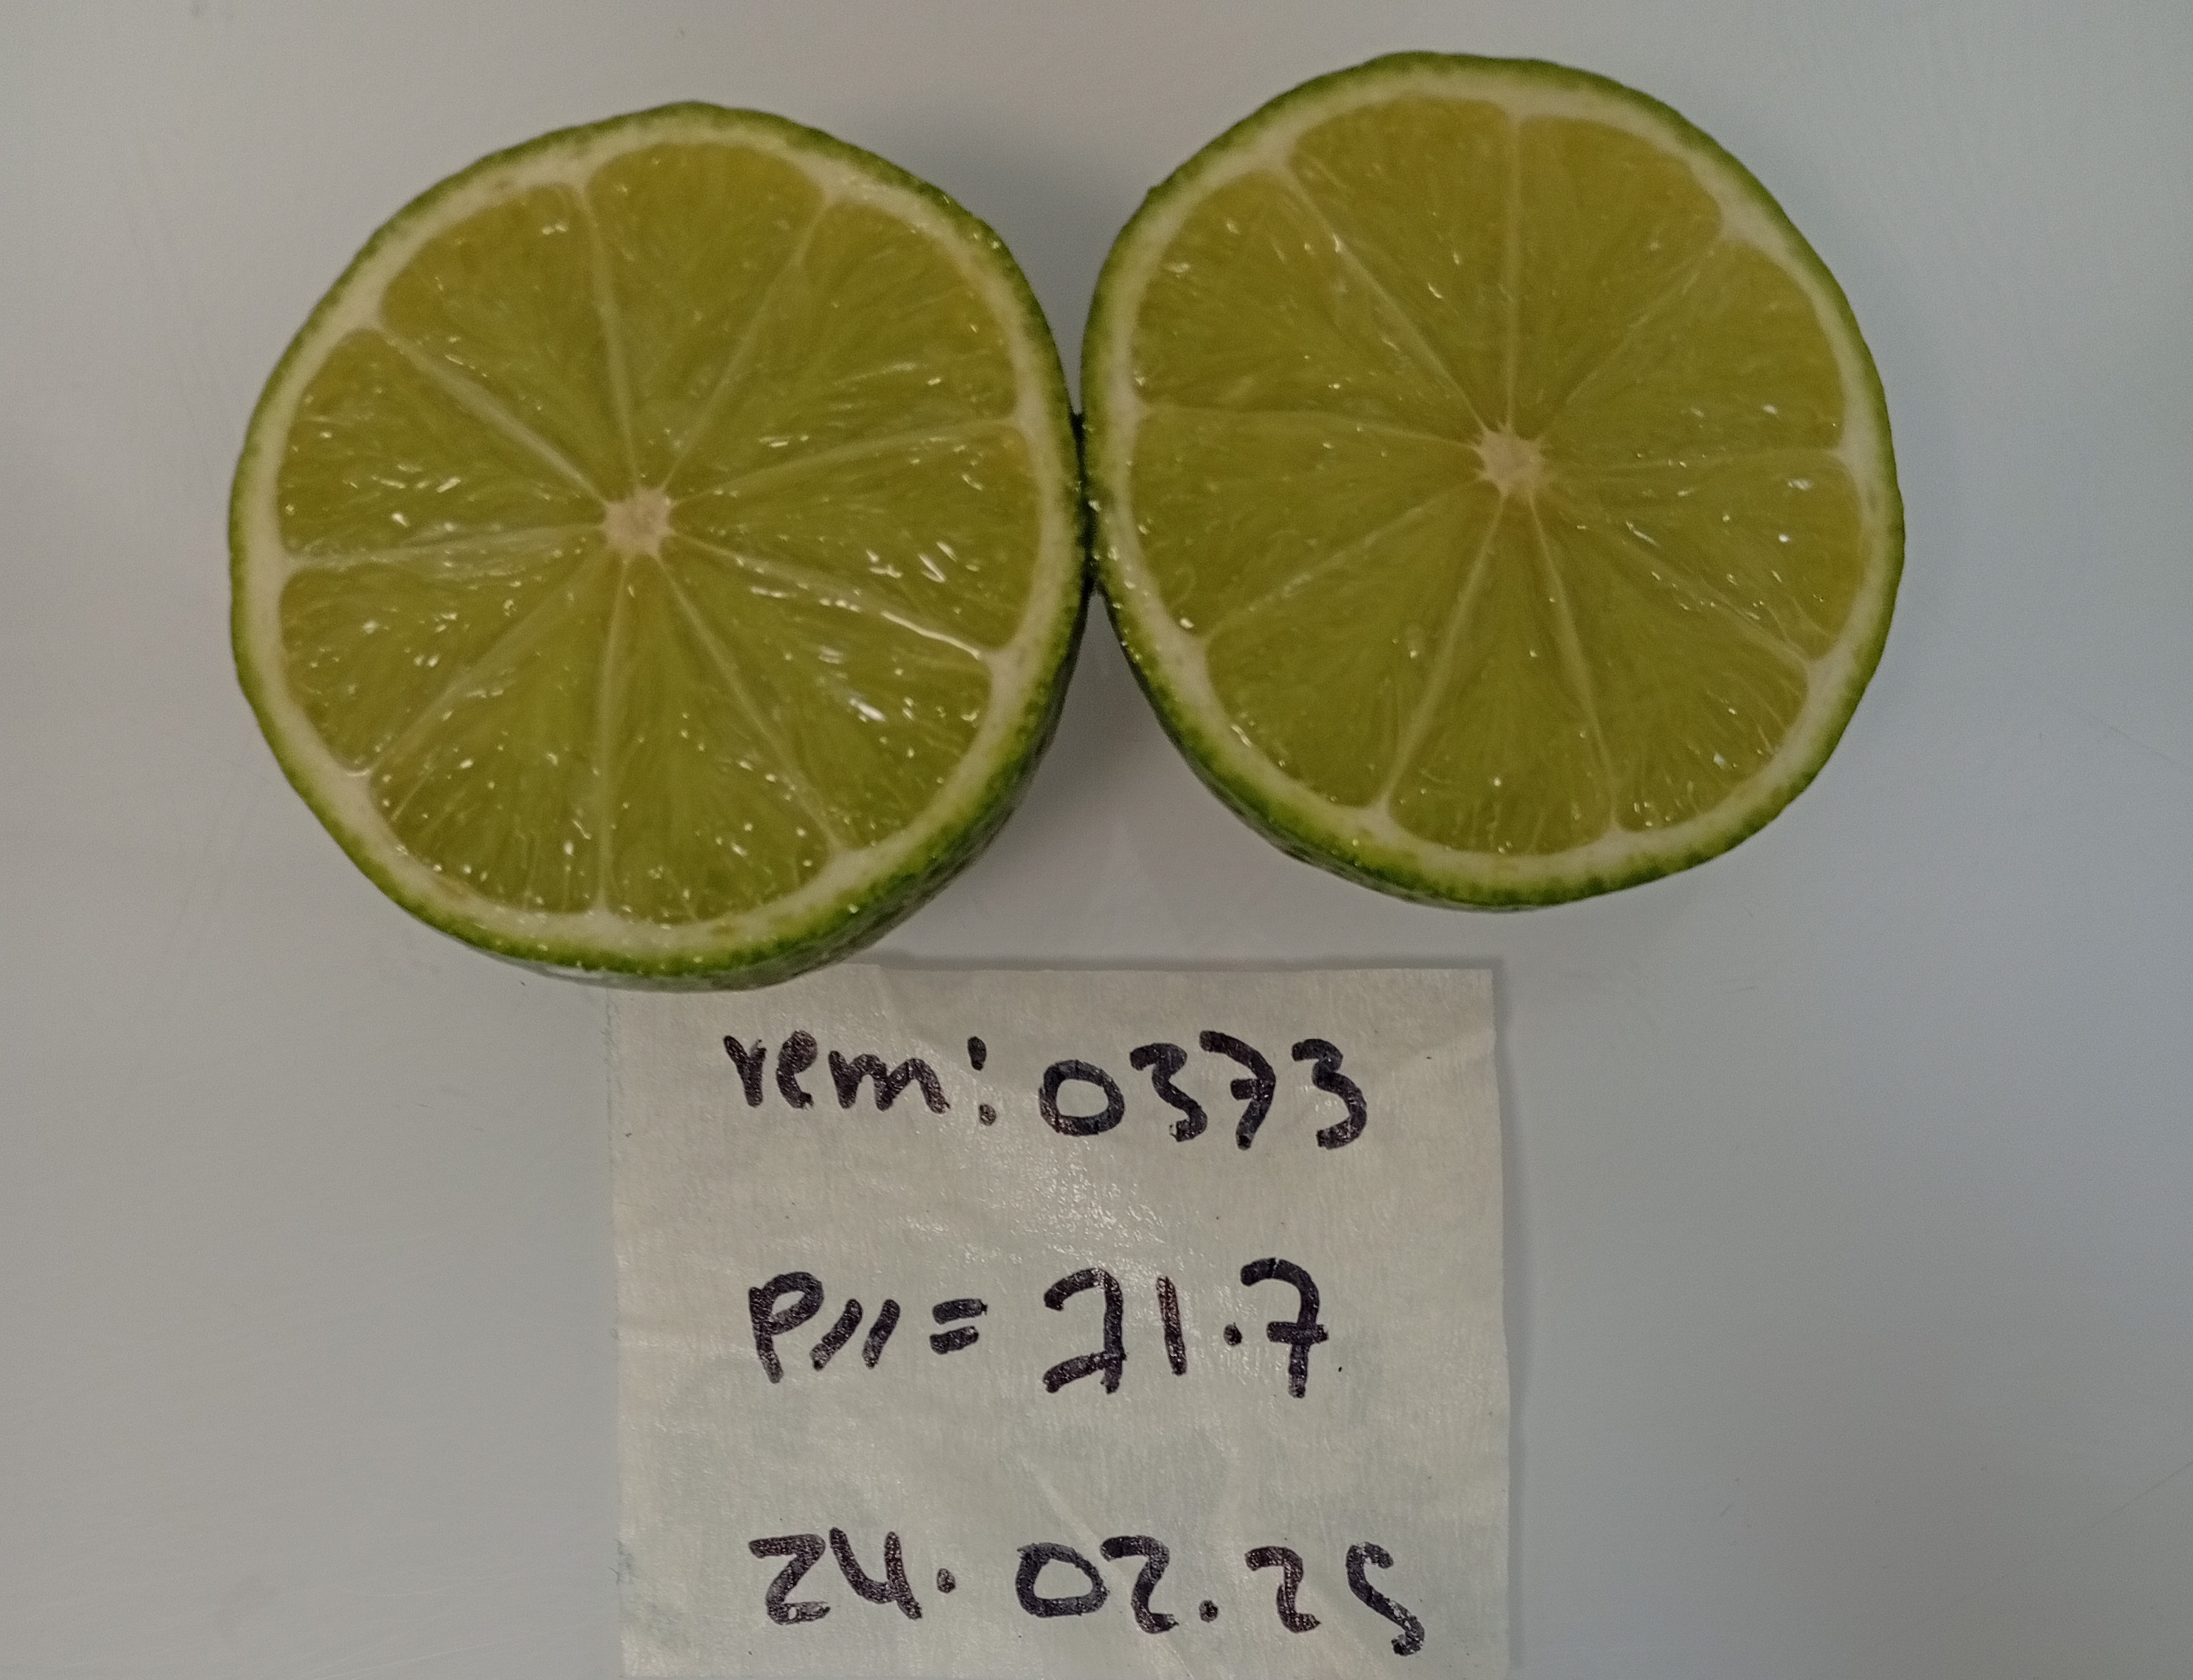 rem: 0373
P11 = 21.7
24.02.25